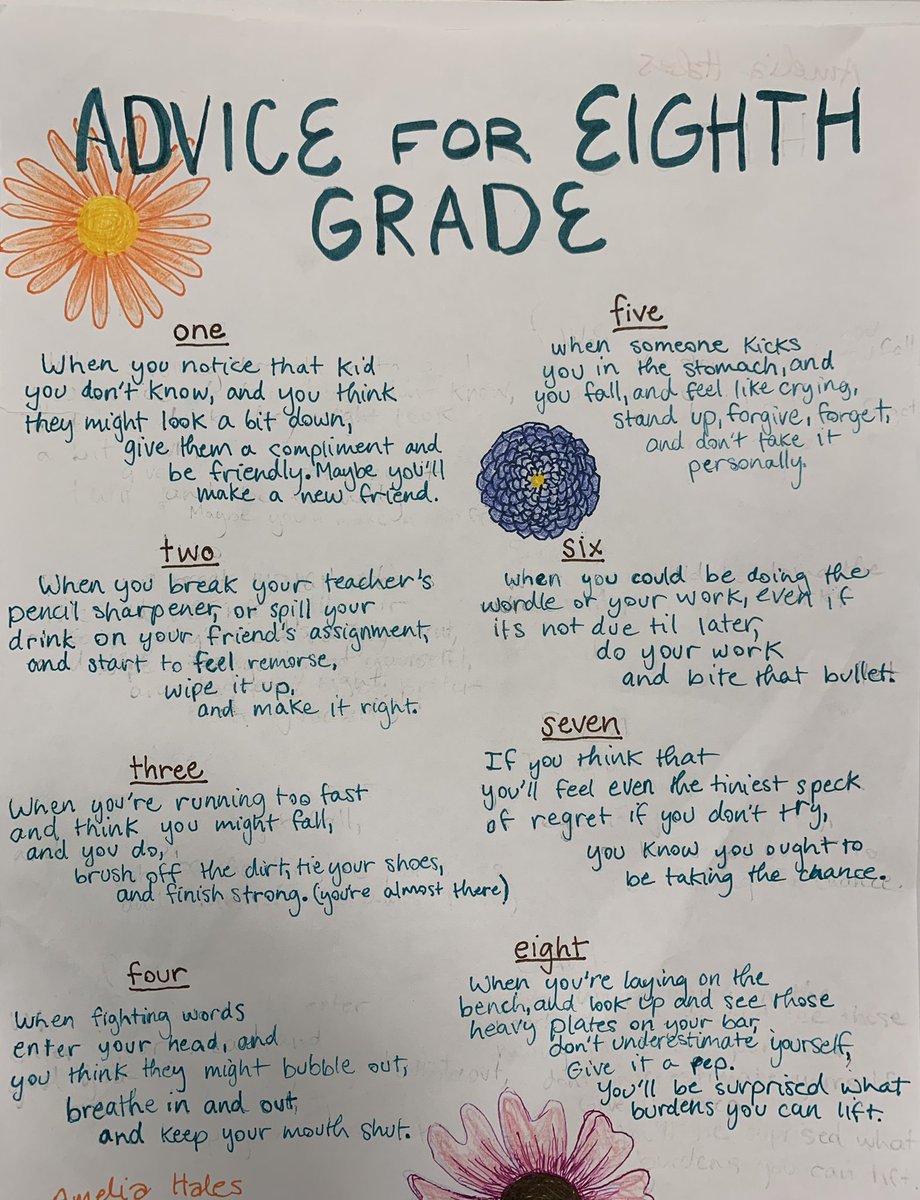 ADVICE FOR EIGHTH
GRADE
one
When you notice that kid
you don't know, and you think
they might look a bit down,
give them a compliment and
be friendly. Maybe you'll
make a new friend.
two
When you break your teacher's
pencil sharpener, or spill your
drink on your friend's assignment,
and start to feel remorse,
wipe it up,
and make it right.
three
When you're running too fast
and think you might fall,
and you do,
brush off the dirt, tie your shoes,
and finish strong. (you're almost there)
four
When fighting words
enter your head, and
you think they might bubble out,
breathe in and out,
and keep your mouth shut.
Amelia Hales
five
when someone kicks
you in the stomach, and
you fall, and feel like crying,
stand up, forgive, forget,
and don't take it
personally.
six
when you could be doing the
wordle or your work, even if
its not due til later,
do your work
and bite that bullet.
seven
If you think that
you'll feel even the tiniest speck
of regret if you don't try,
you know you ought to
be taking the chance.
eight
When you're laying on the
bench, and look up and see those
heavy plates on your bar,
don't underestimate yourself,
Give it a pep.
You'll be surprised what
burdens you can lift.